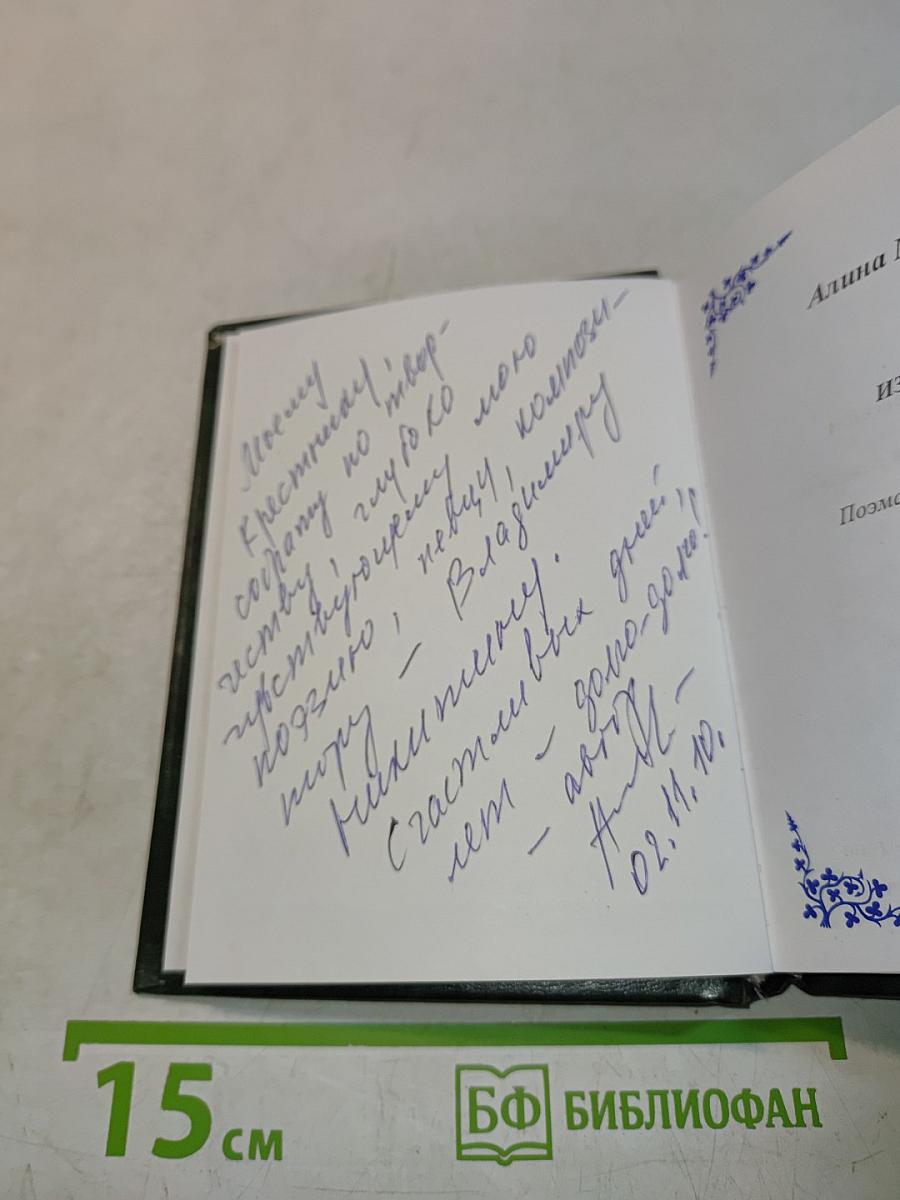 Моему
крестному,
собрату по твор-
честву, глубоко
чувствующему мою
поэзию, певцу, компози-
тору – Владимиру
Никитину.
Счастливых дней,
лет – долго-долго!
– автор
02.11.10.
Алина
Из
Поэма
15 см
БФ БИБЛИОФАН